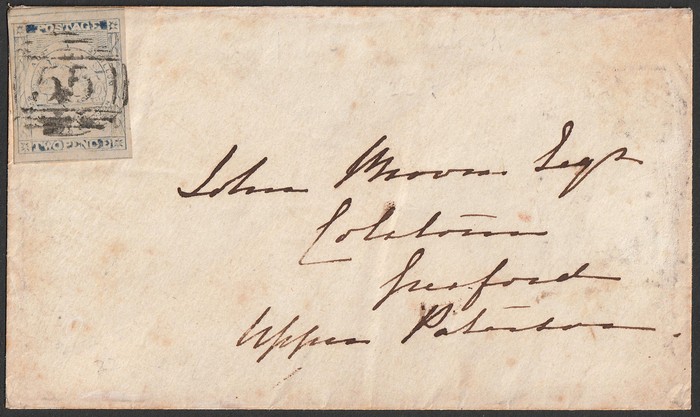 POSTAGE
55
TWOPENCE
John Moore Esqr
Colstoun
Gresford
Upper Paterson